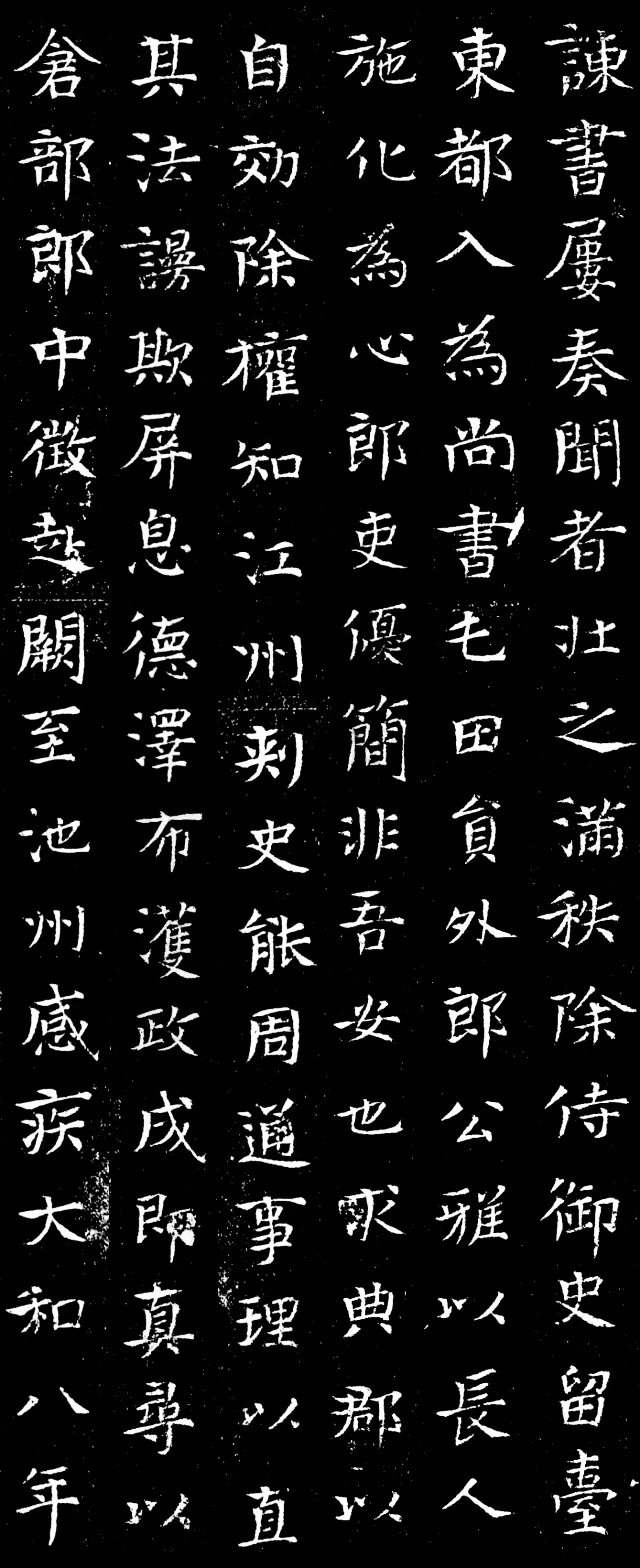 諫書屢奏聞者壯之滿秩除侍御史留臺
東都入為尚書屯田員外郎公雅以長人
施化為心郎吏優簡非吾安也求典郡以
自効除權知江州刺史能周通事理以直
其法謾欺屏息德澤布濩政成即真尋以
倉部郎中徵赴闕至池州感疾大和八年